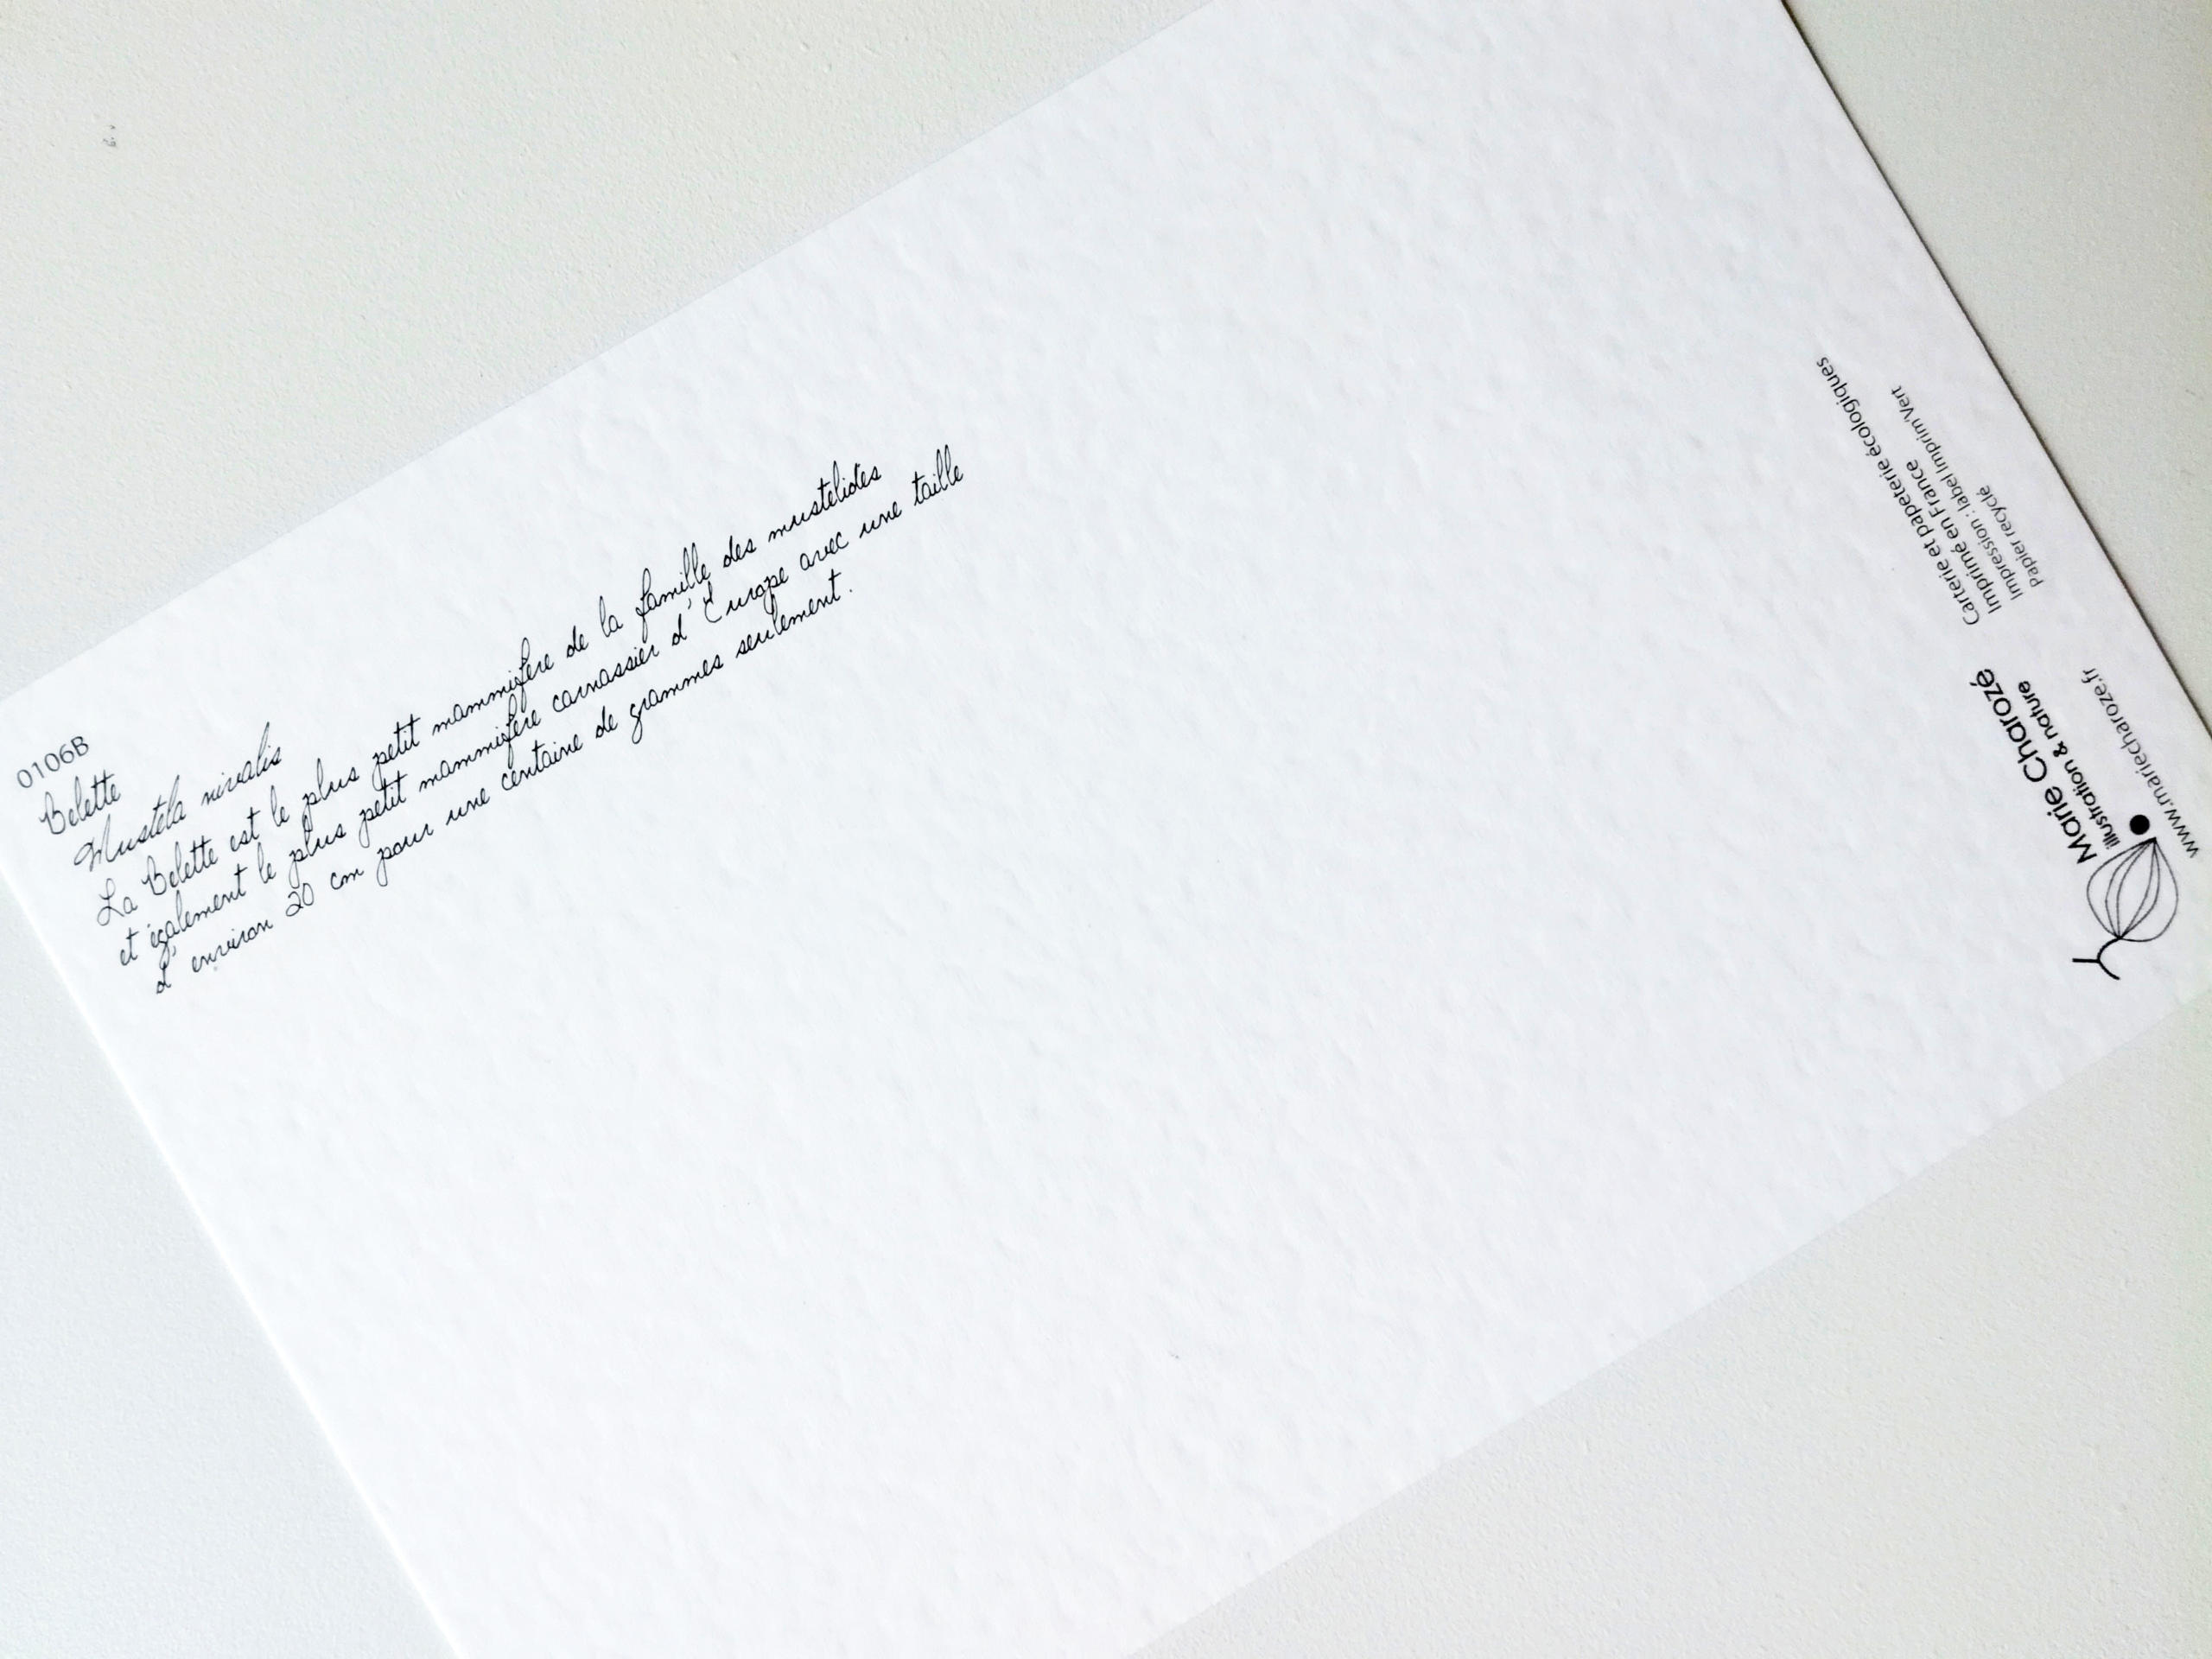 0106B
Belette
Mustela nivalis
La Belette est le plus petit mammifere de la famille des mustelides
et également le plus petit mammifere carnassier d'Europe avec une taille
d'environ 20 cm pour une centaine de grammes seulement.
Marie Charozé
illustration & nature
www.mariecharoze.fr
Carterie et papeterie écologiques
Imprimé en France
Impression : label Imprim'Vert
Papier recyclé